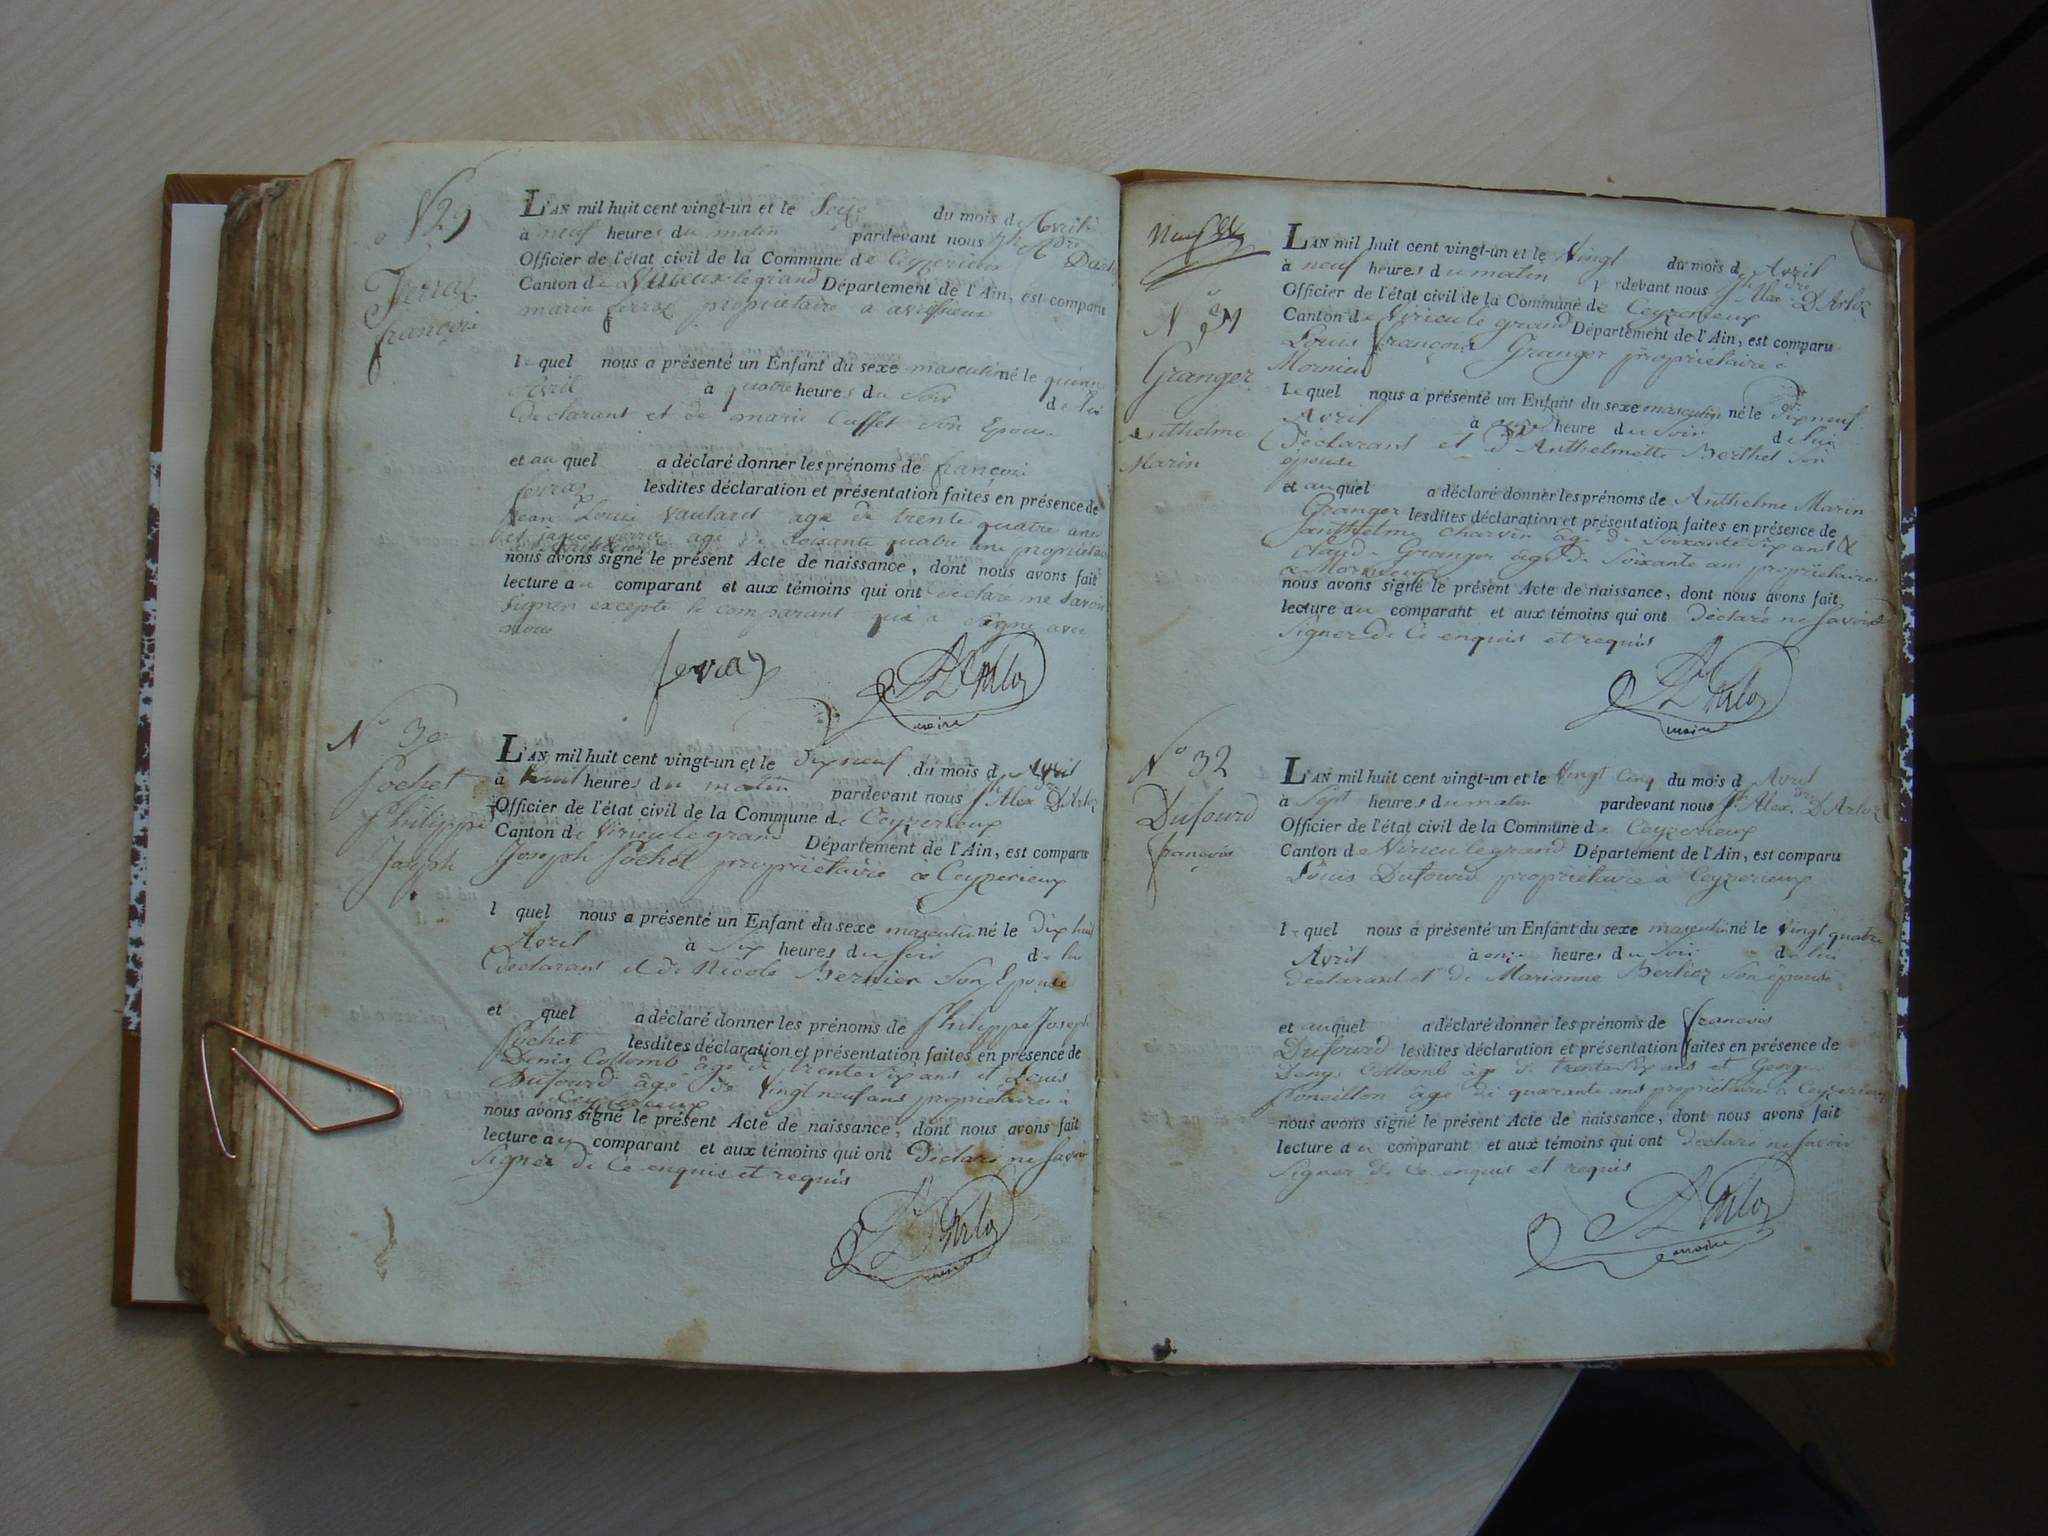 N 29
Ferraz
françois
L'AN mil huit cent vingt-un et le Seize du mois de Avril
à neuf heures du matin pardevant nous Jh Adre Darloz
Officier de l'état civil de la Commune de Ceyzerieux
Canton de Virieux-le grand Département de l'Ain, est comparu
marin ferraz propriétaire a avrissieux
lequel nous a présenté un Enfant du sexe masculin né le quinze
Avril à quatre heures du Soir de lui
declarant et de marie Cusset Son Epouse
et au quel a déclaré donner les prénoms de françois
ferraz lesdites déclaration et présentation faites en présence de
Jean Louis Vautaret age de trente quatre ans
et jaque ferraz age de Soixante quatre ans propriétaire
nous avons signé le présent Acte de naissance, dont nous avons fait
lecture au comparant et aux témoins qui ont declaré ne Savoir
Signer excepté le comparant qui a Signé avec
nous
ferraz
DArloz
maire
No 30
Pochet
Philippe
Joseph
L'AN mil huit cent vingt-un et le Dix neuf du mois d Avril
à huit heures du matin pardevant nous Jh Alexdre DArloz
Officier de l'état civil de la Commune de Ceyzerieux
Canton de Virieu le grand Département de l'Ain, est comparu
Joseph Pochet propriétaire a Ceyzerieux
l quel nous a présenté un Enfant du sexe masculin né le Dix huit
Avril à Six heures du Soir de lui
declarant et de Nicole Bernier Son Epouse
et quel a déclaré donner les prénoms de Philippe Joseph
Pochet lesdites déclaration et présentation faites en présence de
Denis Collomb âgé de trente Six ans et Louis
Dufourd âgé de Vingt neuf ans propriétaires à
Ceyzerieux
nous avons signé le présent Acte de naissance, dont nous avons fait
lecture au comparant et aux témoins qui ont Déclaré ne Savoir
Signer de Ce enquis et requis
DArloz
maire
N 31
Granger
Anthelme
Marin
L'AN mil huit cent vingt-un et le Vingt du mois d Avril
à neuf heures du matin p rdevant nous Jh Alexdre DArloz
Officier de l'état civil de la Commune de Ceyzerieux
Canton de Virieu le grand Département de l'Ain, est comparu
Louis françois Granger propriétaire à
Mornieu
lequel nous a présenté un Enfant du sexe masculin né le Dix neuf
Avril à heure du Soir de lui
Déclarant et d'Anthelmette Berthet Son
épouse
et au quel a déclaré donner les prénoms de Anthelme Marin
Granger lesdites déclaration et présentation faites en présence de
Janthelme Charvin âgé de Soixante Six ans &
Claude Granger âgé de Soixante ans propriétaires
a Mornieux
nous avons signé le présent Acte de naissance, dont nous avons fait
lecture au comparant et aux témoins qui ont Déclaré ne Savoir
Signer de Ce enquis et requis
DArloz
maire
No 32
Dufourd
françois
L'AN mil huit cent vingt-un et le Vingt Cinq du mois d Avril
à Sept heures du matin pardevant nous Jh Alexdre DArloz
Officier de l'état civil de la Commune de Ceyzerieux
Canton de Virieu le grand Département de l'Ain, est comparu
Louis Dufourd propriétaire a Ceyzerieux
lequel nous a présenté un Enfant du sexe masculin né le Vingt quatre
Avril à onze heures du Soir de lui
Declarant et de Marianne Berlioz Son épouse
et au quel a déclaré donner les prénoms de françois
Dufourd lesdites déclaration et présentation faites en présence de
Denys Collomb âgé de trente Six ans et George
Poncillon âgé de quarante ans propriétaires a Ceyzerieux
nous avons signé le présent Acte de naissance, dont nous avons fait
lecture au comparant et aux témoins qui ont Déclaré ne Savoir
Signer de Ce enquis et requis
DArloz
maire